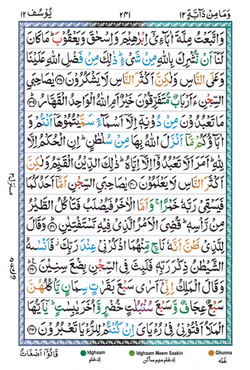 وَمَا مِنْ دَآبَّةٍ ١٢
٢٣١
يُوْسُف ١٢
وَاتَّبَعْتُ مِلَّةَ اٰبَآءِیْۤ اِبْرٰهِیْمَ وَاِسْحٰقَ وَیَعْقُوْبَ ؕ مَا كَانَ
لَنَاۤ اَنْ نُّشْرِكَ بِاللّٰهِ مِنْ شَیْءٍ ؕ ذٰلِكَ مِنْ فَضْلِ اللّٰهِ عَلَیْنَا
وَعَلَی النَّاسِ وَلٰكِنَّ اَكْثَرَ النَّاسِ لَا یَشْكُرُوْنَ ﴿۳۸﴾ یٰصَاحِبَیِ
السِّجْنِ ءَاَرْبَابٌ مُّتَفَرِّقُوْنَ خَیْرٌ اَمِ اللّٰهُ الْوَاحِدُ الْقَهَّارُ ﴿۳۹﴾
مَا تَعْبُدُوْنَ مِنْ دُوْنِهٖۤ اِلَّاۤ اَسْمَآءً سَمَّیْتُمُوْهَاۤ اَنْتُمْ وَ
اٰبَآؤُكُمْ مَّاۤ اَنْزَلَ اللّٰهُ بِهَا مِنْ سُلْطٰنٍ ؕ اِنِ الْحُكْمُ اِلَّا
لِلّٰهِ ؕ اَمَرَ اَلَّا تَعْبُدُوْۤا اِلَّاۤ اِیَّاهُ ؕ ذٰلِكَ الدِّیْنُ الْقَیِّمُ وَلٰكِنَّ
اَكْثَرَ النَّاسِ لَا یَعْلَمُوْنَ ﴿۴۰﴾ یٰصَاحِبَیِ السِّجْنِ اَمَّاۤ اَحَدُكُمَا
فَیَسْقِیْ رَبَّهٗ خَمْرًا ۚ وَاَمَّا الْاٰخَرُ فَیُصْلَبُ فَتَاْكُلُ الطَّیْرُ
مِنْ رَّاْسِهٖ ؕ قُضِیَ الْاَمْرُ الَّذِیْ فِیْهِ تَسْتَفْتِیٰنِ ﴿۴۱﴾ وَقَالَ
لِلَّذِیْ ظَنَّ اَنَّهٗ نَاجٍ مِّنْهُمَا اذْكُرْنِیْ عِنْدَ رَبِّكَ ؗ فَاَنْسٰىهُ
الشَّیْطٰنُ ذِكْرَ رَبِّهٖ فَلَبِثَ فِی السِّجْنِ بِضْعَ سِنِیْنَ ﴿۴۲﴾
وَقَالَ الْمَلِكُ اِنِّیْۤ اَرٰی سَبْعَ بَقَرٰتٍ سِمَانٍ یَّاْكُلُهُنَّ
سَبْعٌ عِجَافٌ وَّسَبْعَ سُنْۢبُلٰتٍ خُضْرٍ وَّاُخَرَ یٰبِسٰتٍ ؕ یٰۤاَیُّهَا
الْمَلَاُ اَفْتُوْنِیْ فِیْ رُءْیَایَ اِنْ كُنْتُمْ لِلرُّءْیَا تَعْبُرُوْنَ ﴿۴۳﴾
قَالُوْۤا اَضْغَاثُ
Idghaam
ادغام
Idghaam Meem Saakin
ادغام میم ساکن
Ghunna
غنّہ